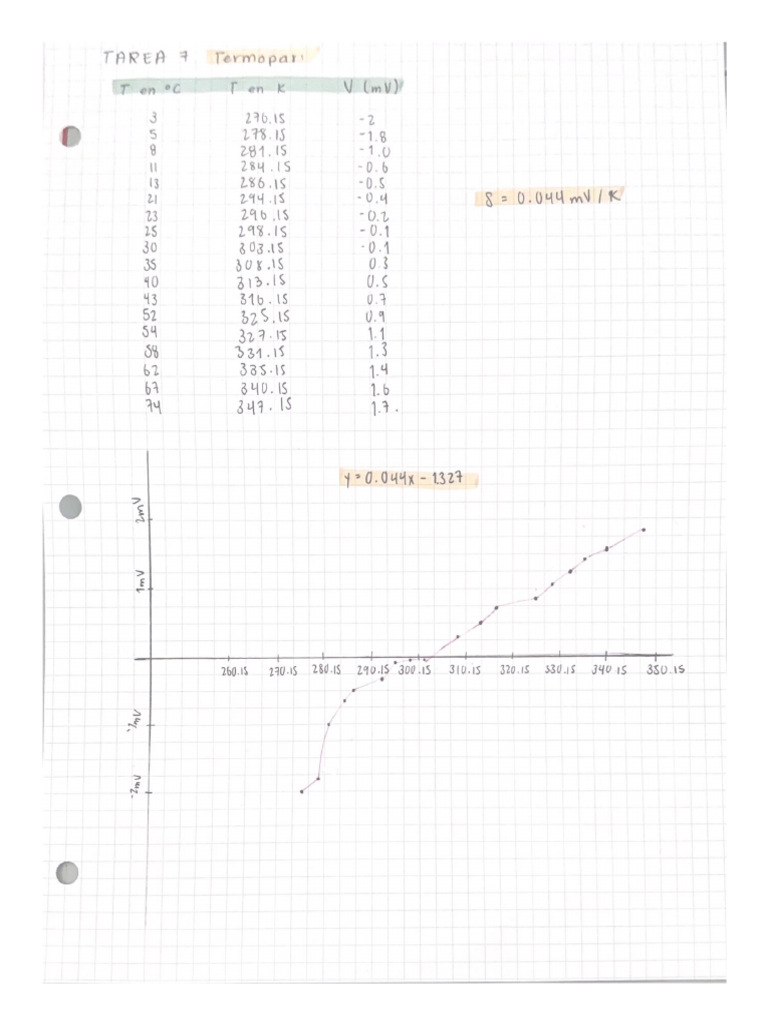 TAREA 7 Termopar
T en °C T en K V (mV)
3 276.15 -2
5 278.15 -1.8
8 281.15 -1.0
11 284.15 -0.6
13 286.15 -0.5
21 294.15 -0.4
23 296.15 -0.2
25 298.15 -0.1
30 303.15 -0.1
35 308.15 0.3
40 313.15 0.5
43 316.15 0.7
52 325.15 0.9
54 327.15 1.1
58 331.15 1.3
62 335.15 1.4
67 340.15 1.6
74 347.15 1.7.
S = 0.044 mV / K
y = 0.044x - 1.327
2mV
1mV
260.15 270.15 280.15 290.15 300.15 310.15 320.15 330.15 340.15 350.15
-1mV
-2mV